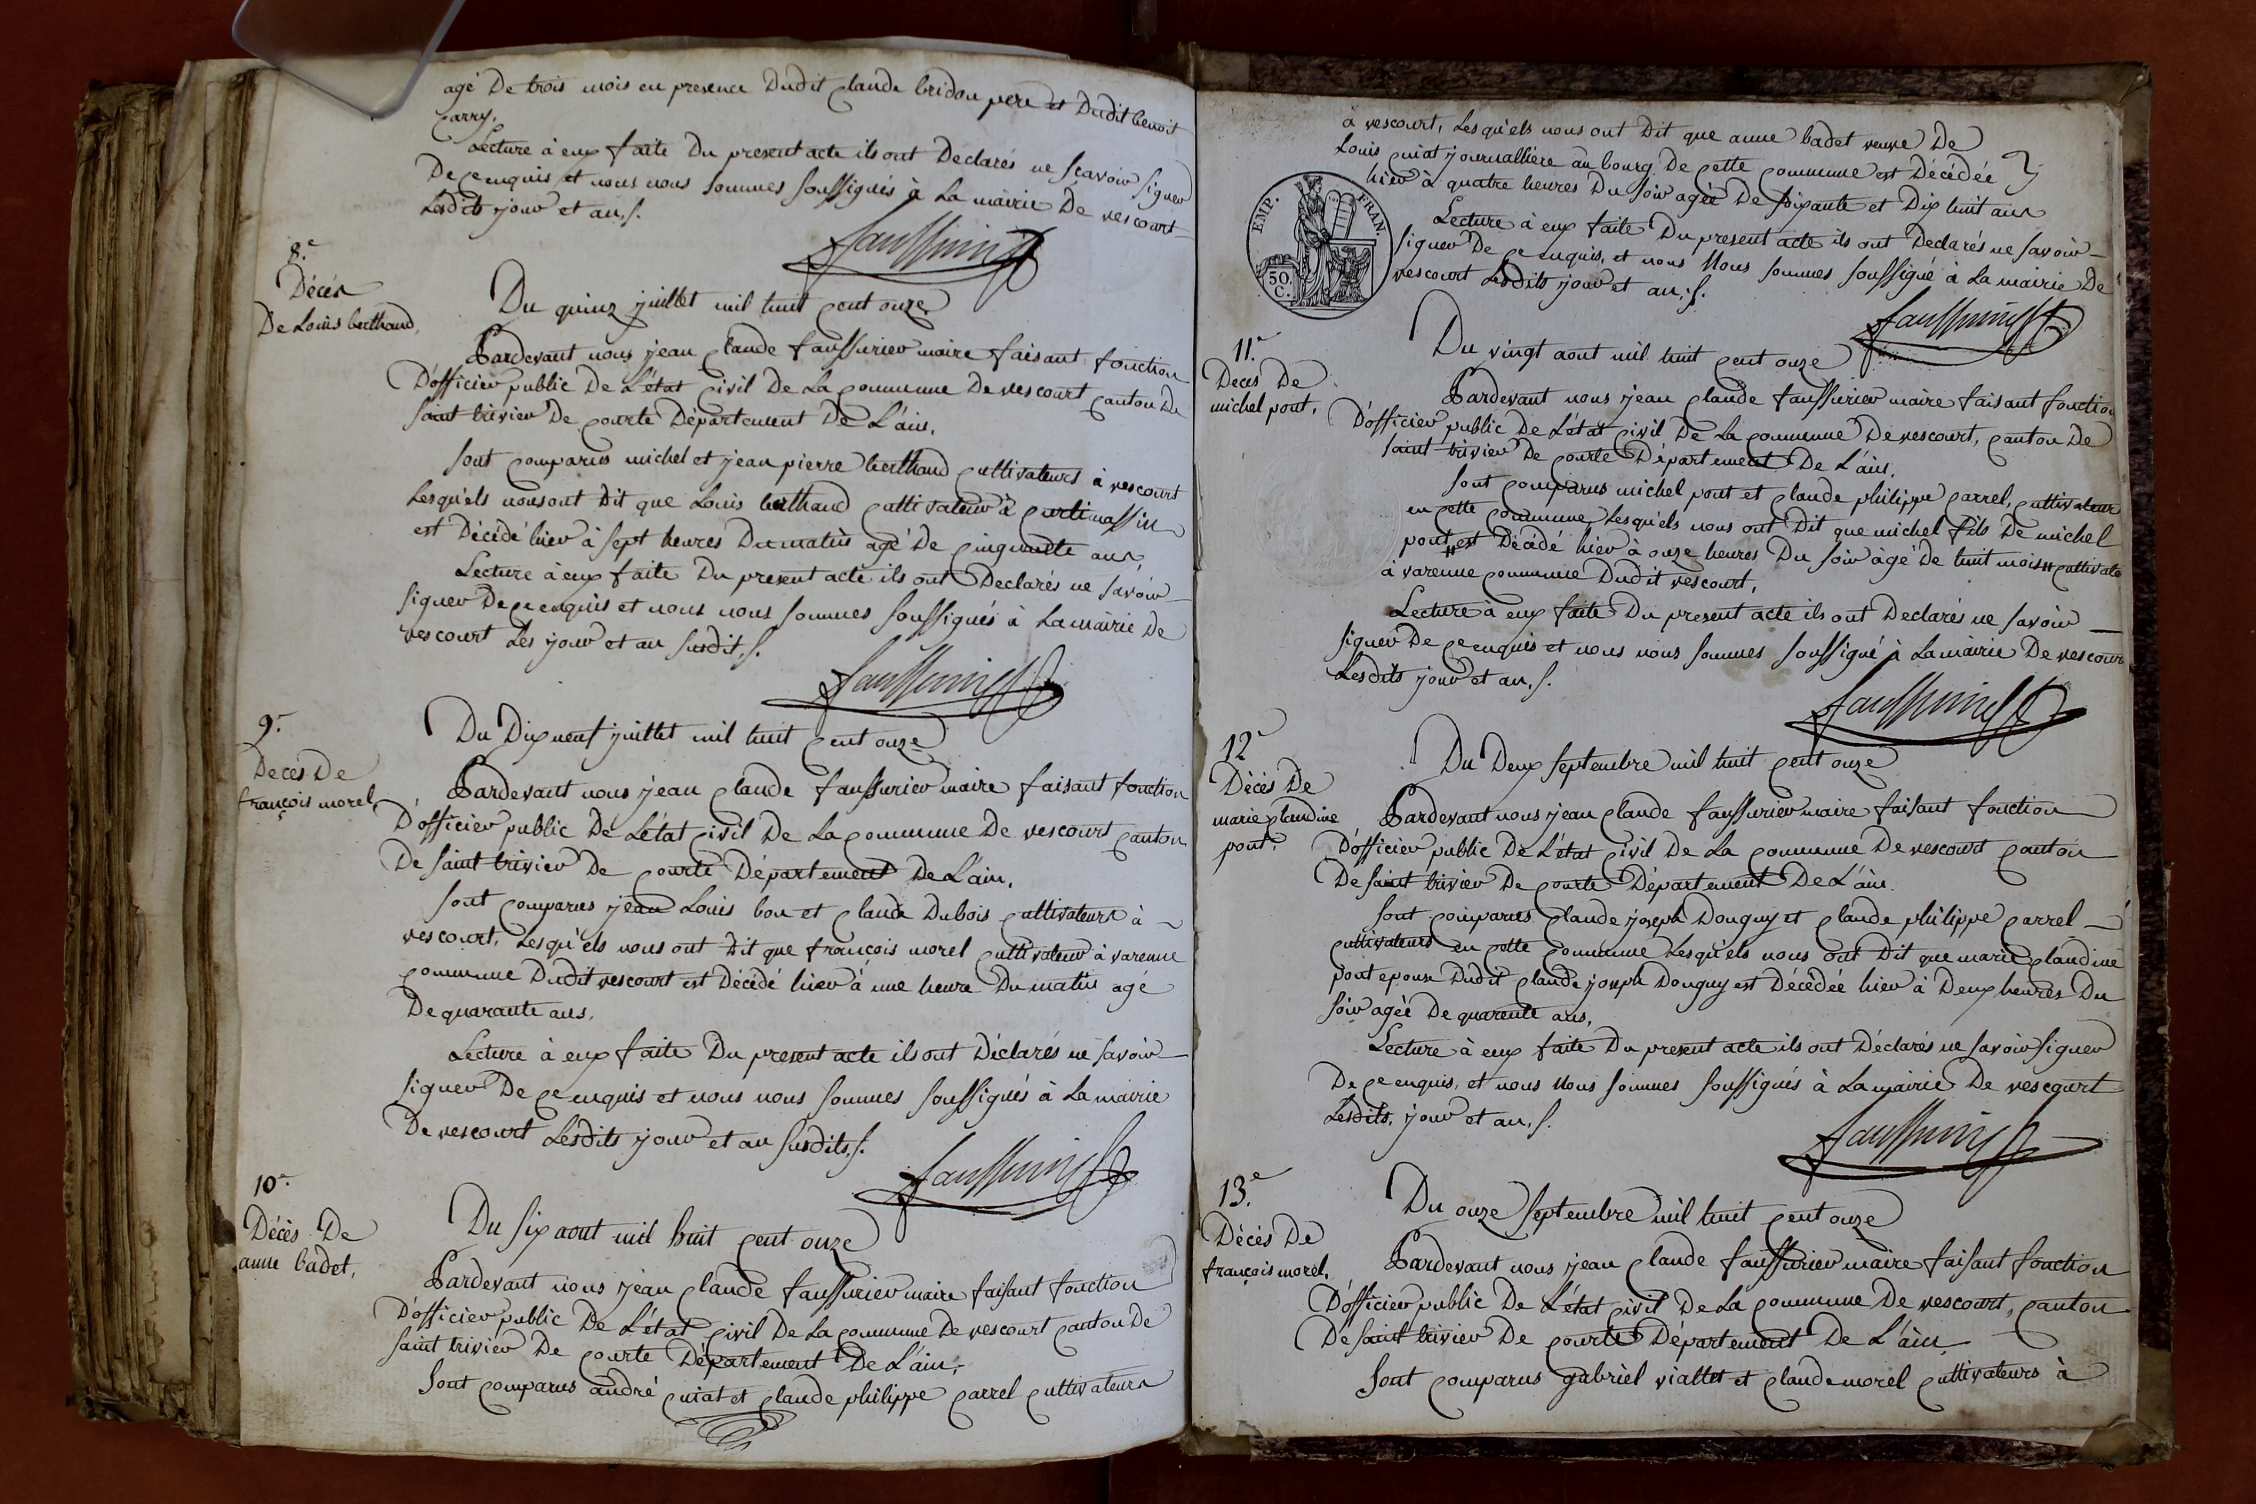 agé De trois mois en presence Dudit Claude bridon pere et Dudit benoit
Carry.
Lecture à eux faite Du present acte ils ont Declarés ne sçavoir signer
De ce enquis, et nous nous sommes soussignés à La mairie De vescourt
Lesdits jour et an. /.
8.e
Décés
De Louis berthaud,
Du quinz juillet mil huit cent onze
Pardevant nous jean Claude faussurier maire faisant fonction
D'officier public De L'état Civil De La Commune De vescourt Canton De
saint trivier De Courte Département De L'ain.
sont Comparus michel et jean pierre berthaud Cultivateurs à vescourt
Lesqu'els nous ont Dit que Louis berthaud Cultivateur à Curtimassin
est Décédé hier à sept heures Du matin agé De Cinquante ans,
Lecture à eux faite Du present acte ils ont Declarés ne savoir
signer De ce enquis et nous nous sommes soussignés à La mairie De
vescourt Les jour et an susdit. /.
9.e
Deces De
françois morel,
Du Dix neuf juillet mil huit Cent onze
Pardevant nous jean Claude faussurier maire faisant fonction
D'officier public De L'état Civil De La Commune De vescourt Canton
De saint trivier De Courte Département De L'ain.
sont Comparus jean Louis bon et Claude Dubois Cultivateurs à
vescourt, Lesqu'els nous ont Dit que françois morel Cultivateur à varenne
Commune Dudit vescourt est Décédé hier à une heure Du matin agé
De quarante ans.
Lecture à eux faite Du present acte ils ont Déclarés ne savoir
signer De ce enquis et nous nous sommes soussignés à La mairie
De vescourt Lesdits jour et an susdits. /.
10.e
Décès De
anne badet,
Du six aout mil huit Cent onze
Pardevant nous jean Claude faussurier maire faisant fonction
D'officier public De L'état Civil De La Commune De vescourt Canton De
saint trivier De Courte Département De L'ain,
sont Comparus andré Cuiat et Claude philippe Carrel Cultivateurs
à vescourt, Lesqu'els nous ont Dit que anne badet veuve De
Louis Cuiat journallière au bourg De Cette Commune est Décédée
hier à quatre heures Du soir agée De soixante et Dix huit ans
Lecture à eux faite Du present acte ils ont Declarés ne savoir
signer De ce enquis, et nous Nous sommes soussigné à La mairie De
vescourt Lesdits jour et an. /.
EMP. FRAN.
50.
C.
11.e
Deces De
michel pont,
Du vingt aout mil huit Cent onze
Pardevant nous jean Claude faussurier maire faisant fonction
D'officier public De L'état Civil De La Commune De vescourt, Canton De
saint trivier De Courte Département De L'ain.
sont Comparus michel pont et Claude philippe Carrel, Cultivateurs
en Cette Commune Lesqu'els nous ont Dit que michel fils De michel
pont # est Décédé hier à onze heures Du soir àgé De huit mois # Cultivate
à varenne Commune Dudit vescourt,
Lecture à eux faite Du present acte ils ont Declarés ne savoir
signer De ce enquis et nous nous sommes soussigné à La mairie De vescour
Lesdits jour et an. /.
12.e
Décès De
marie Claudine
pont,
Du Deux septembre mil huit Cent onze
Pardevant nous jean Claude faussurier maire faisant fonction
D'officier public De L'état Civil De La Commune De vescourt Canton
De saint trivier De Courte Département De L'ain.
sont Comparus Claude joseph Donguy et Claude philippe Carrel
Cultivateurs en Cette Commune Lesqu'els nous ont Dit que marie Claudine
pont epouse Dudit Claude joseph Donguy est Décédée hier à Deux heures Du
soir agée De quarente ans,
Lecture à eux faite Du present acte ils ont Déclarés ne savoir signer
De ce enquis, et nous Nous sommes soussignés à La mairie De vescourt
Lesdits, jour et an. /.
13.e
Décès De
françois morel,
Du onze septembre mil huit Cent onze
Pardevant nous jean Claude faussurier maire faisant fonction
D'officier public De L'état Civil De La Commune De vescourt, Canton
De saint trivier De Courte Département De L'ain
sont Comparus gabriel viallet et Claude morel Cultivateurs à